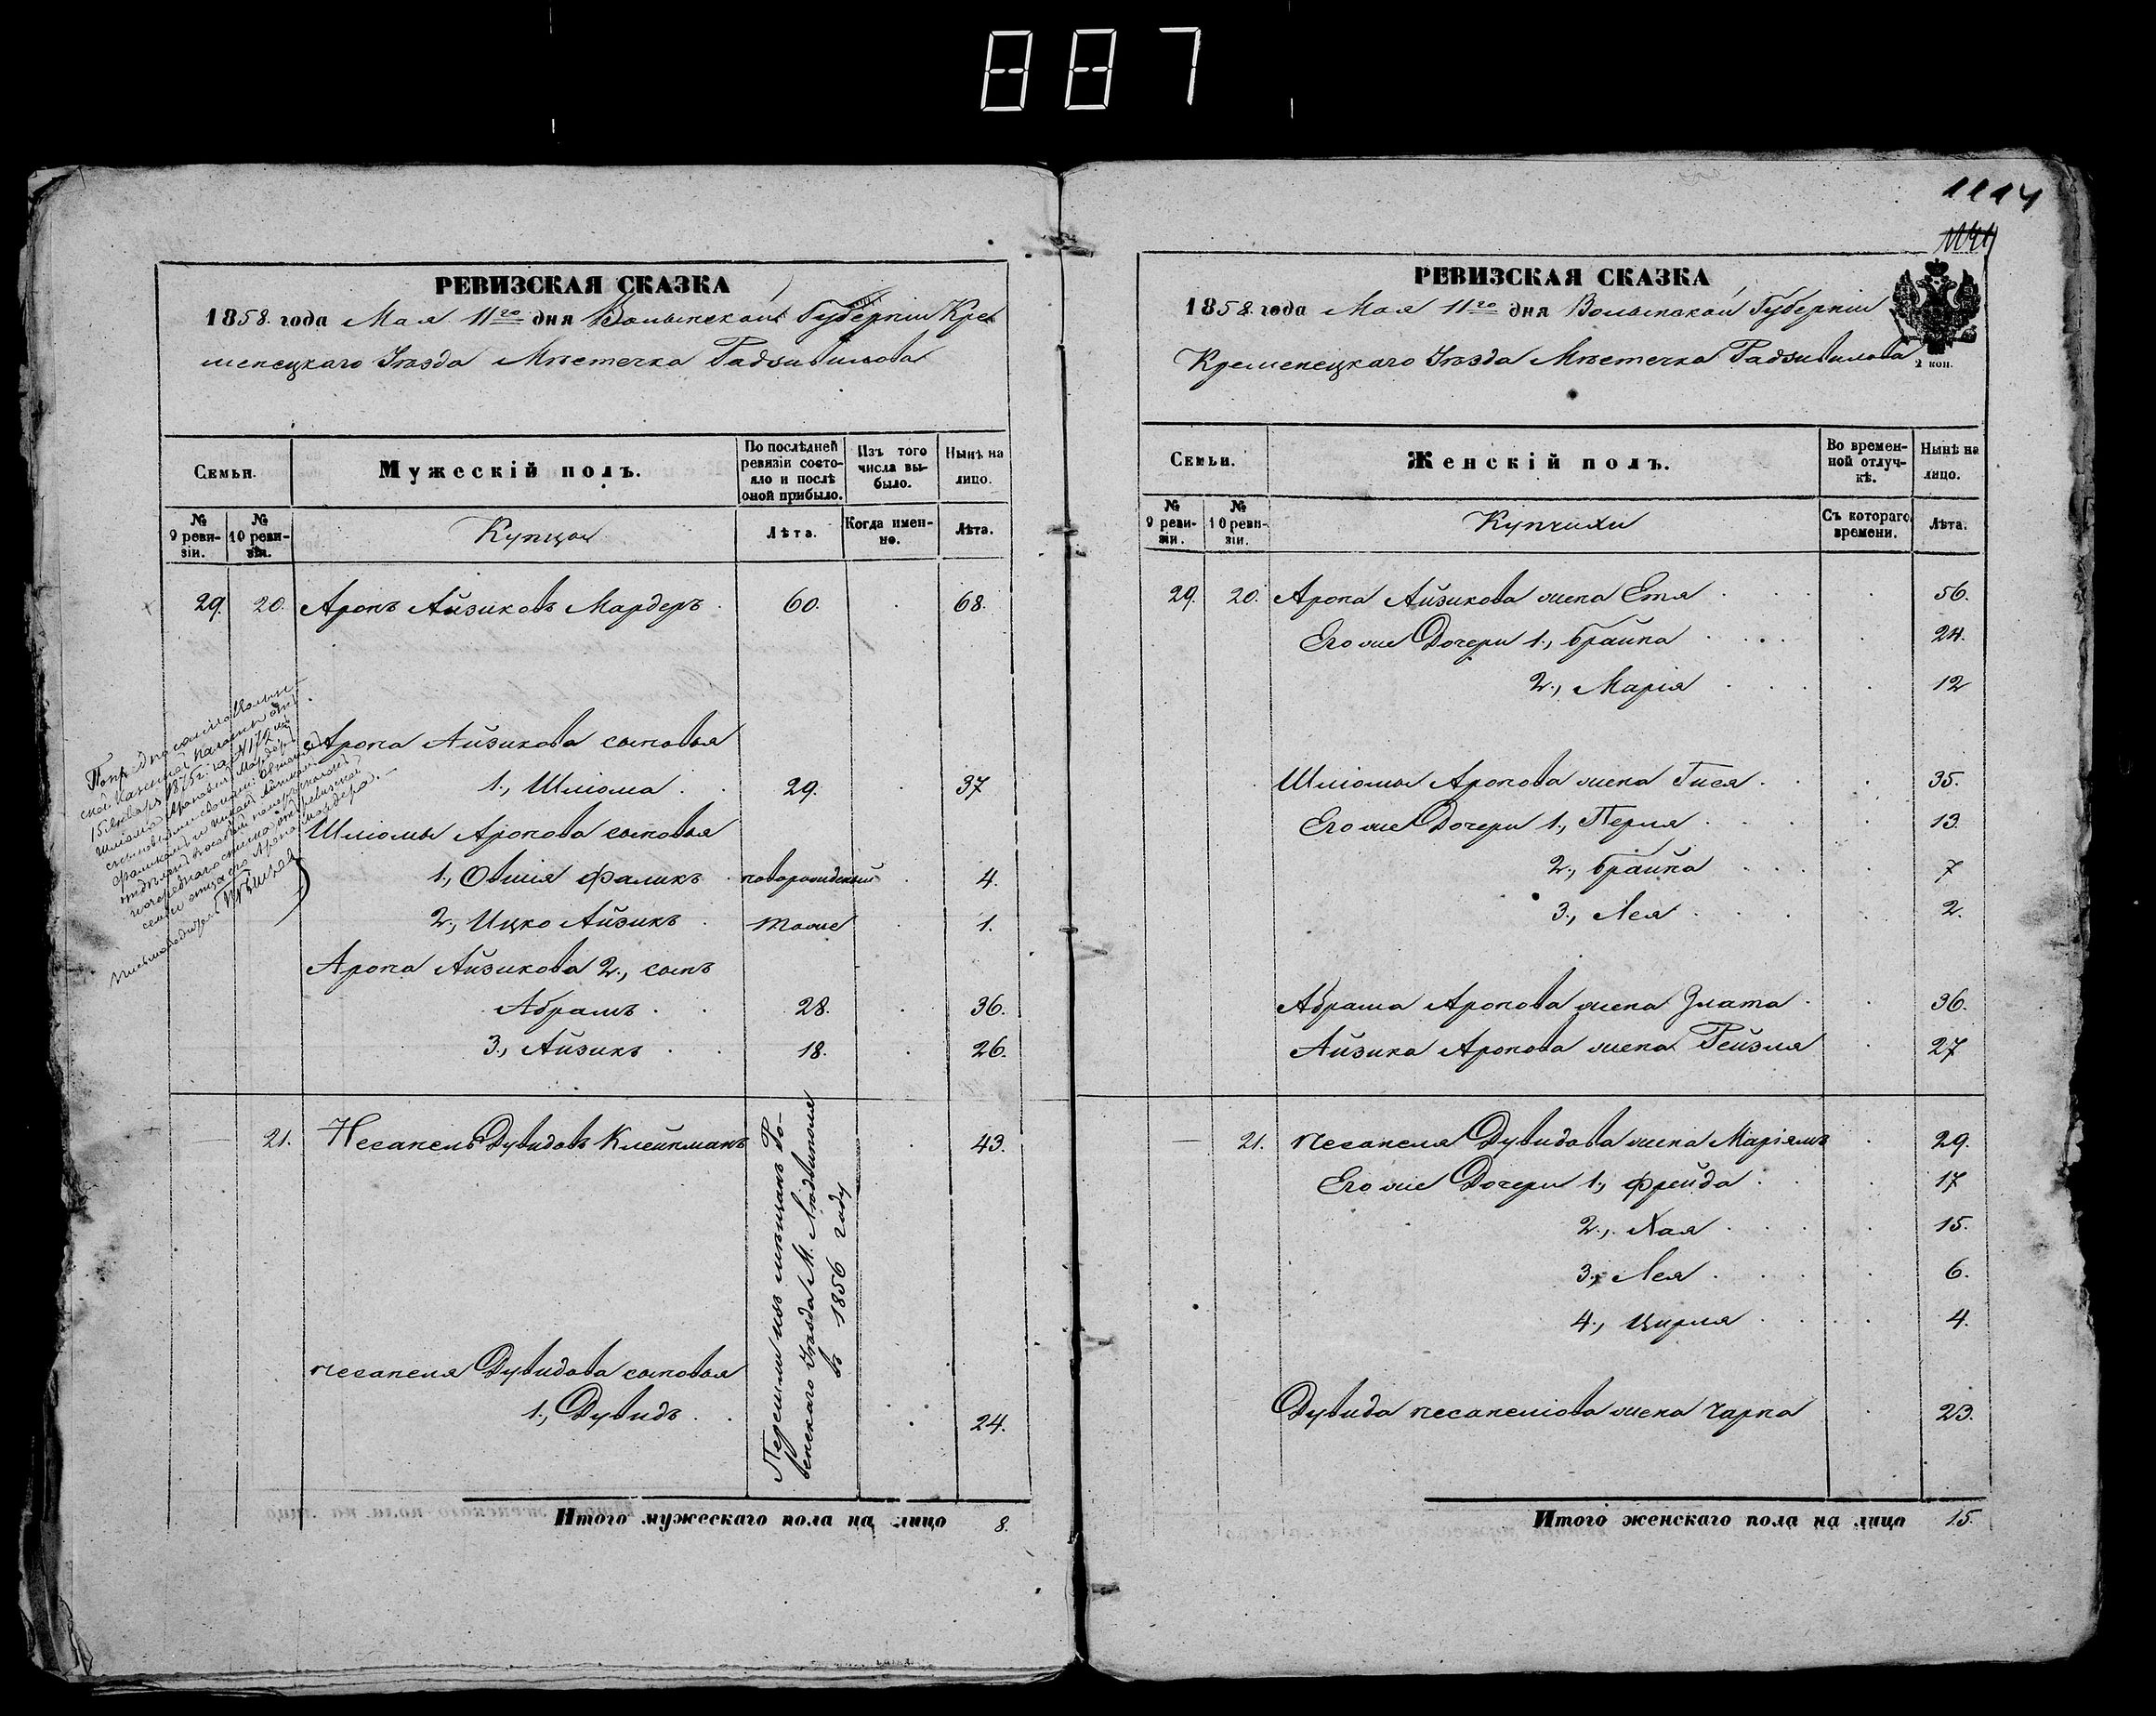 887
РЕВИЗСКАЯ СКАЗКА
1858. года Мая 11го дня Волынской Губерніи Кре
менецкаго Уѣзда Мѣстечка Радзивилова
Семьи.
Мужескій полъ.
По послѣдней ревизіи состояло и послѣ оной прибыло.
Изъ того числа выбыло.
Нынѣ на лицо.
№ 9 ревизіи.
№ 10 ревизіи.
Купцы
Лѣта.
Когда именно.
Лѣта.
29. 20. Аронъ Айзиковъ Мардеръ . 60. . 68.
Арона Айзикова сыновья
1., Шліома . . 29. . 37
Шліомы Аронова сыновья
1., Овшія Фаликъ . новорожденный . 4.
2., Ицко Айзикъ . тоже . 1.
Арона Айзикова 2., сынъ
Абрамъ . . 28. . 36.
3., Айзикъ . . 18. . 26.
По предписанію Волын-
ской Казенной Палаты отъ
15 Января 1875 г. за № 172
Шліома Ароновъ Мардеръ
съ сыновьями своими Овшіею
Фаликомъ и Ицкомъ Айзикомъ
семьи отца его Арона Мардера.
— 21. Несанель Дувидовъ Клейнманъ . 43.
Перешли изъ мѣщанъ Ро-
венскаго Уѣзда М. Людвиполя
въ 1856 году
Несанеля Дувидова сыновья
1., Дувидъ . . 24.
Итого мужескаго пола на лицо 8.
1114
РЕВИЗСКАЯ СКАЗКА
1858. года Мая 11го дня Волынской Губерніи
Кременецкаго Уѣзда Мѣстечка Радзивилова
2 коп.
Семьи.
Женскій полъ.
Во временной отлучкѣ.
Нынѣ на лицо.
№ 9 ревизіи.
№ 10 ревизіи.
Купчихи
Съ котораго времени.
Лѣта.
29. 20. Арона Айзикова жена Етя . . . 56.
Его же Дочери 1., Брайна . . . 24.
2., Марія . . . 12
Шліомы Аронова жена Гися . . . 35.
Его же Дочери 1., Перля . . . 13.
2., Брайна . . . 7
3., Лея . . . 2.
Абрама Аронова жена Злата . . 36.
Айзика Аронова жена Рейзля . 27
— 21. Несанеля Дувидова жена Маріямъ . 29.
Его же Дочери 1., Фрейда . . . 17
2., Хая . . . 15.
3., Лея . . . 6.
4., Цирля . . . 4.
Дувида Несанеліова жена Чарна . 23.
Итого женскаго пола на лицо 15.